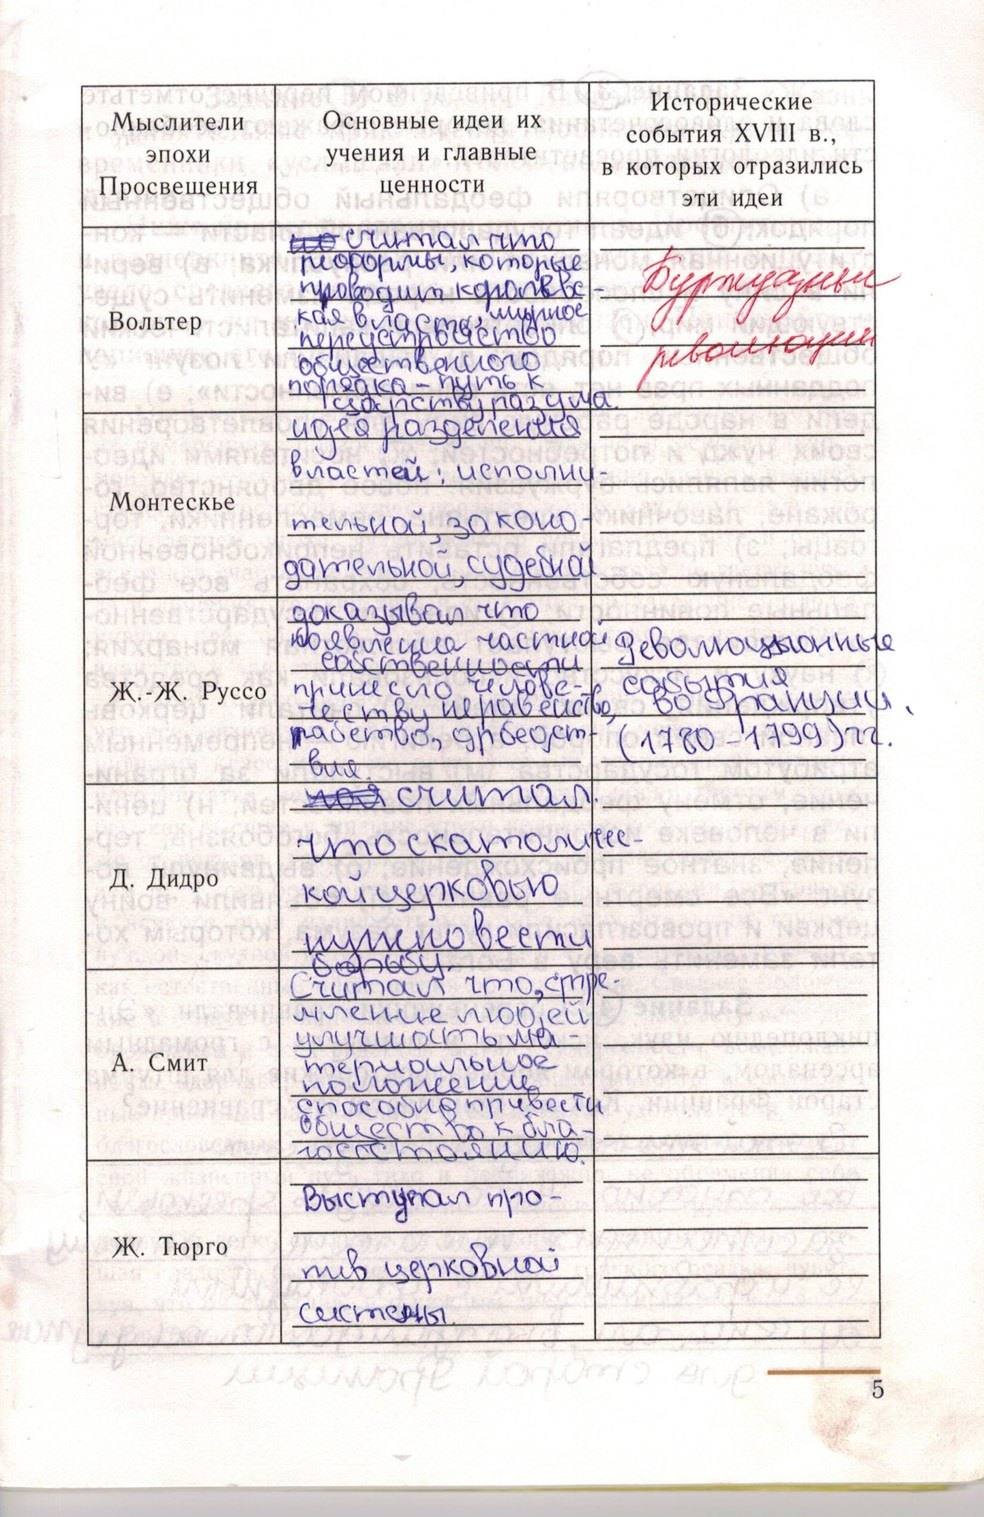 Мыслители
эпохи
Просвещения
Основные идеи их
учения и главные
ценности
Исторические
события XVIII в.,
в которых отразились
эти идеи
Вольтер
считал что
реформы, которые
проводил королевс-
кая власть, мирное
переустройство
общественного
порядка – путь к
царству разума.
Буржуазные
революции
Монтескье
идея разделения
властей: исполни-
тельной, законо-
дательной, судебной
Ж.-Ж. Руссо
доказывал что
появление частной
собственности
принесло челове-
честву неравенство,
рабство,
вия.
Революционные
события
во Франции.
(1780 – 1799) гг.
Д. Дидро
считал.
что с католичес-
кой церковью
нужно вести
борьбу.
А. Смит
Считал что, стре
мление людей
улучшать ма
териальное
положение
способно привести
общество к бла-
госостоянию.
Ж. Тюрго
Выступал про-
тив церковной
системы.
5